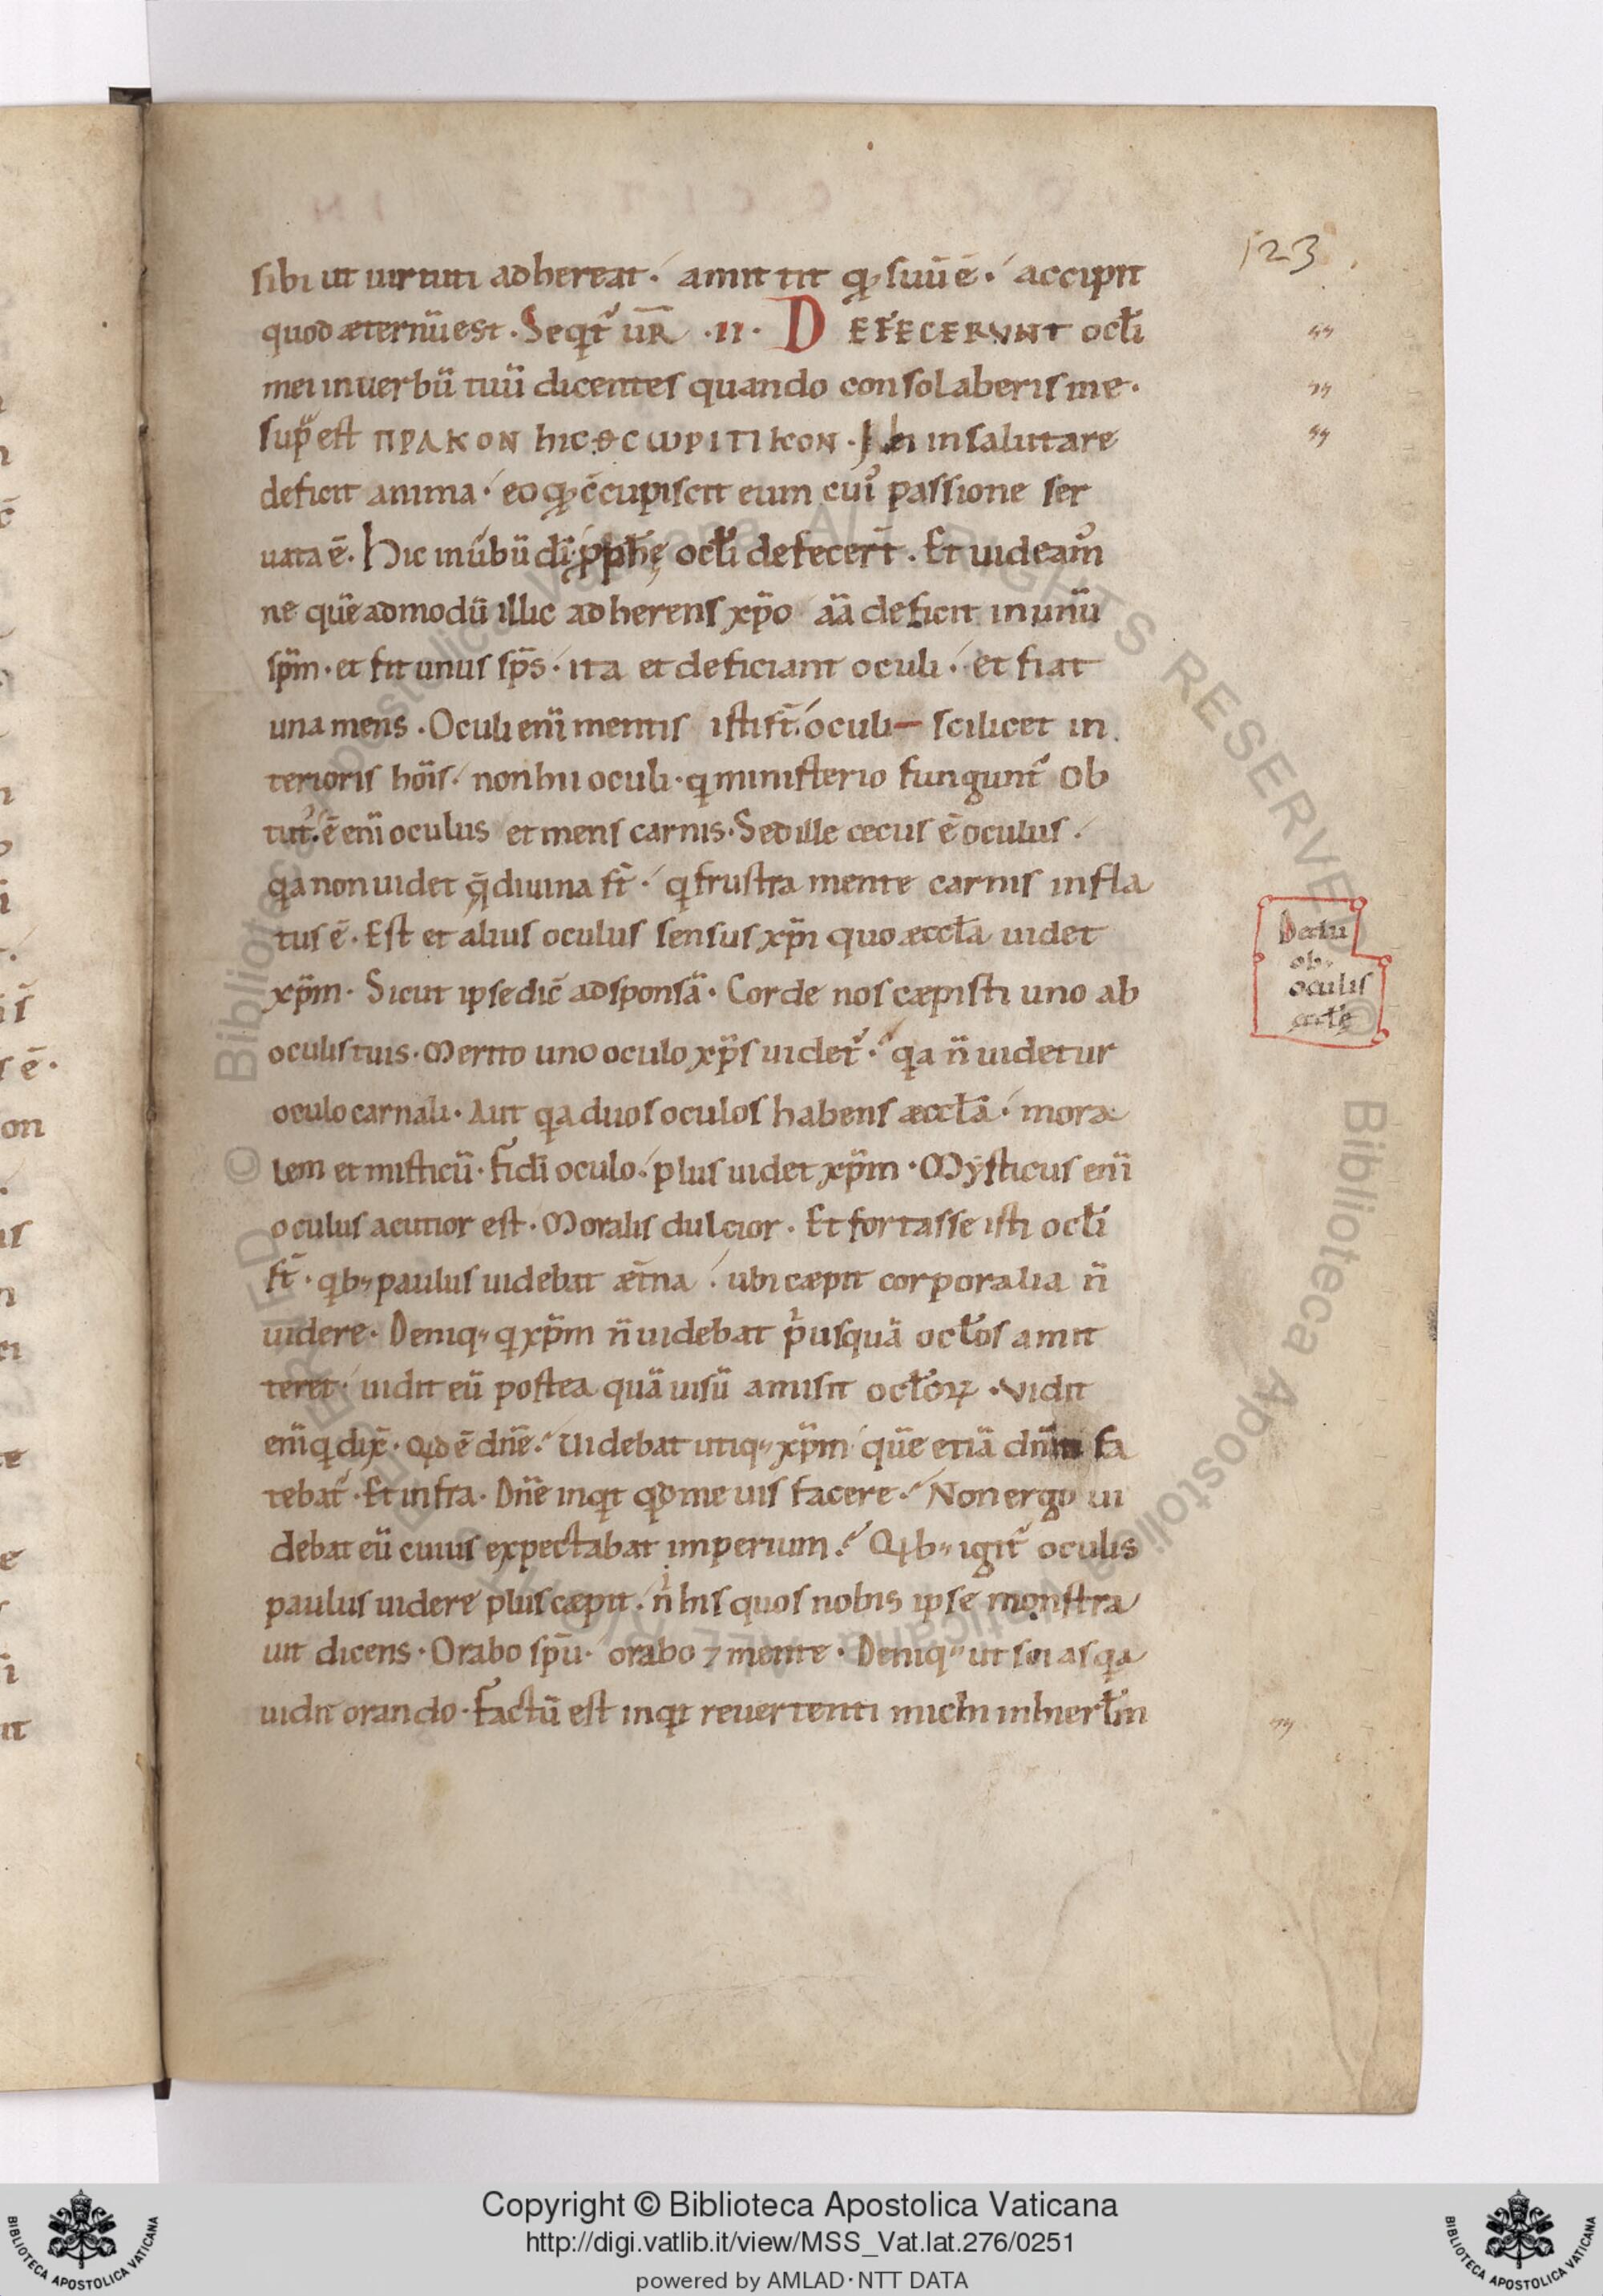 123
sibi ut uirtuti adhereat. amittit qđ suū ē. accipit
quod æternū est. Seqt᷑ ūR .II. DEFECERVNT ocłi
mei in uerbū tuū dicentes quando consolaberis me.
sup̄ est ΠΡΑΚΟΝ hic ΘΕωΡΙΤΙΚΟΝ. Ibi in salutare
deficit anima. eo qđ c̄cupiscit eum cui᷒ passione ser
uata ē. Hic in ūbū dī ꝓph̄ę ocłi defecer̄t. Et uideam᷒
ne quē admodū illic adherens xp̄o aā deficit in unū
sp̄m. et fit unus sp̄s. ita et deficiant oculi. et fiat
una mens. Oculi enī mentis isti st̄ oculi scilicet in
terioris hoīs. non hii oculi. q ministerio fungunt᷑ ob
tut᷒. ē enī oculus et mens carnis. Sed ille cecus ē oculus.
qa non uidet q̄ diuina st̄. q frustra mente carnis infla
tus ē. Est et alius oculus sensus xp̄i quo æccła uidet
xp̄m. Sicut ipse dic̄ ad sponsā. Corde nos cæpisti uno ab
oculis tuis. Merito uno oculo xp̄s uidet᷑. qa n̄ uidetur
oculo carnali. Aut qa duos oculos habens æccła. mora
lem et misticū. fidī oculo. plus uidet xp̄m. Mysticus enī
oculus acutior est. Moralis dulcior. Et fortasse isti ocłi
st̄. qb; paulus uidebat æt̄na. ubi cæpit corporalia n̄
uidere. Deniq; q xp̄m n̄ uidebat pⁱusquā ocłos amit
teret. uidit eū postea quā uisū amisit ocłoꝝ. Vidit
enī q dix̄. Qđ ē dn̄e. Uidebat utiq; xp̄m quē etiā dn̄m fa
tebat᷑. Et infra. Dn̄e inqt qđ me uis facere. Non ergo ui
debat eū cuius expectabat imperium. Qb; igit᷑ oculis
paulus uidere plus cæpit. nⁱ his quos nobis ipse monstra
uit dicens. Orabo sp̄u. orabo ⁊ mente. Deniq; ut scias qa
uidit orando. Factū est inqt reuertenti michi in hierłm
oculis
æccłę
Copyright © Biblioteca Apostolica Vaticana
http://digi.vatlib.it/view/MSS_Vat.lat.276/0251
powered by AMLAD·NTT DATA
BIBLIOTECA APOSTOLICA VATICANA
BIBLIOTECA APOSTOLICA VATICANA